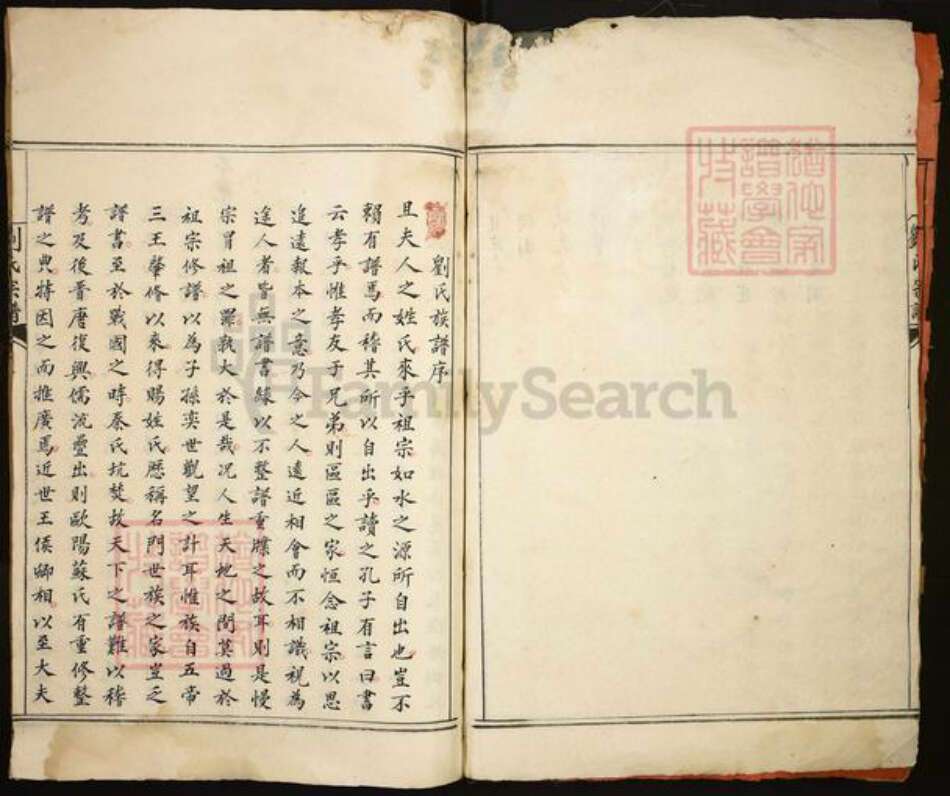 劉氏族譜序
且夫人之姓氏來乎祖宗如水之源所自出也豈不
賴有譜焉而稽其所以自出乎讀之孔子有言曰書
云孝乎惟孝友于兄弟則區區之家恒念祖宗以思
追遠報本之意乃今之人遠近相會而不相識視為
途人者皆無譜書緣以不整譜重牒之故耳則是慢
宗冒祖之罪孰大於是哉况人生天地之間莫過於
祖宗修譜以為子孫奕世觀望之計耳惟族自五帝
三王肇修以來得賜姓氏歷稱名門世族之家豈乏
譜書至於戰國之時秦氏坑焚故天下之譜難以稽
考及後晉唐復興儒流疊出則歐陽蘇氏有重修整
譜之典特因之而推廣焉近世王侯卿相以至大夫
劉氏宗譜
FamilySearch